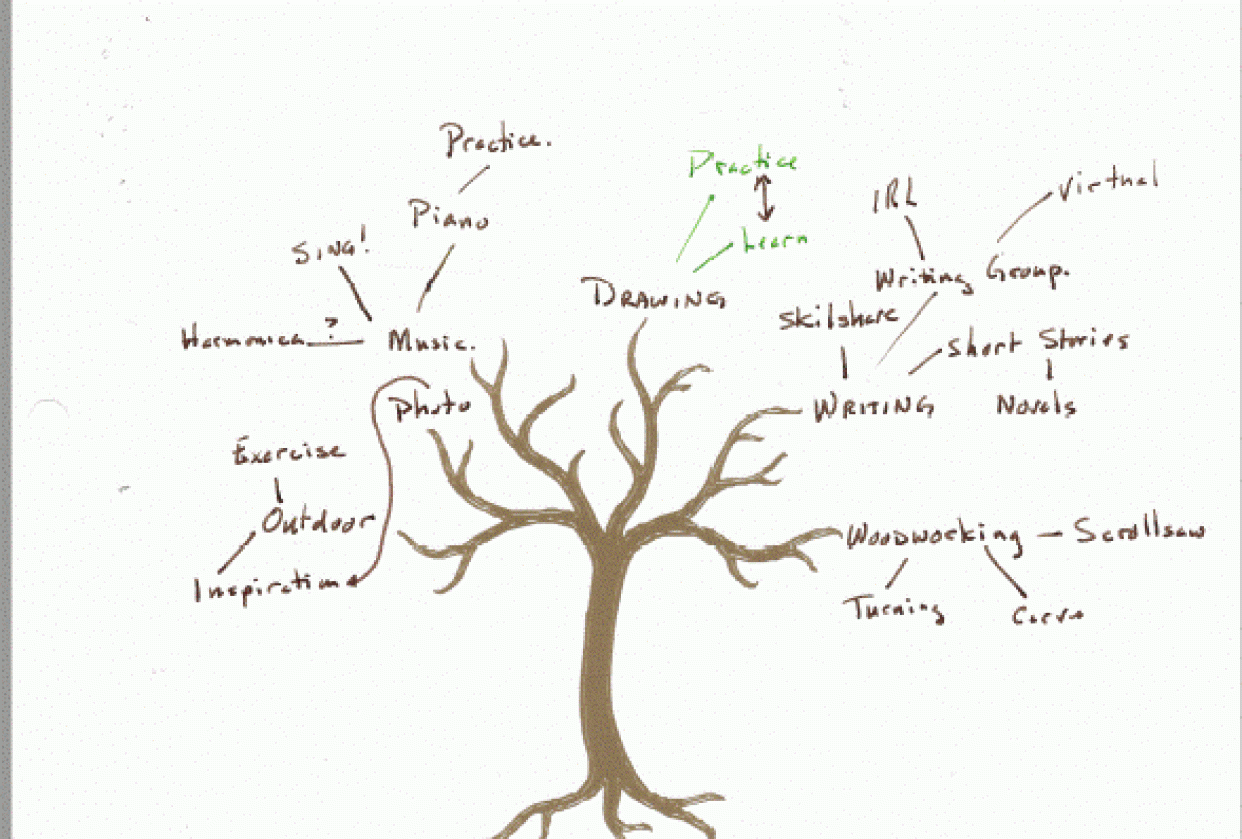 Practice.
Piano
SING!
Harmonica ?
Music.
Photo
Exercise
Outdoor
Inspiration
Practice
Learn
DRAWING
IRL
Virtual
Writing Group.
Skilshare
Short Stories
Novels
WRITING
WOODWORKING - Scrollsaw
Turning
Carve